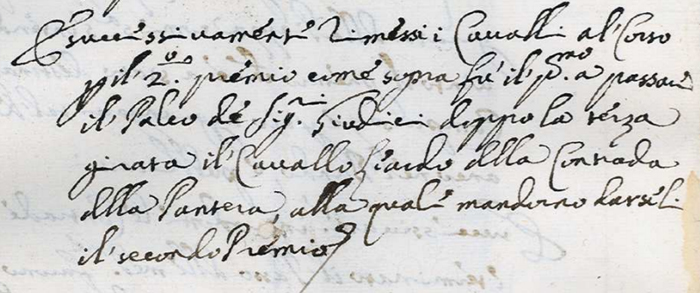 E successivamente rimessi i Cavalli al Corso
p il 2.º premio come sopra fù il p.mo a passare
il Palco de Sig.ri Giudici doppo la terza
girata il Cavallo Leardo della Contrada
della Pantera, alla quale mandorno darseli
il secondo Premio